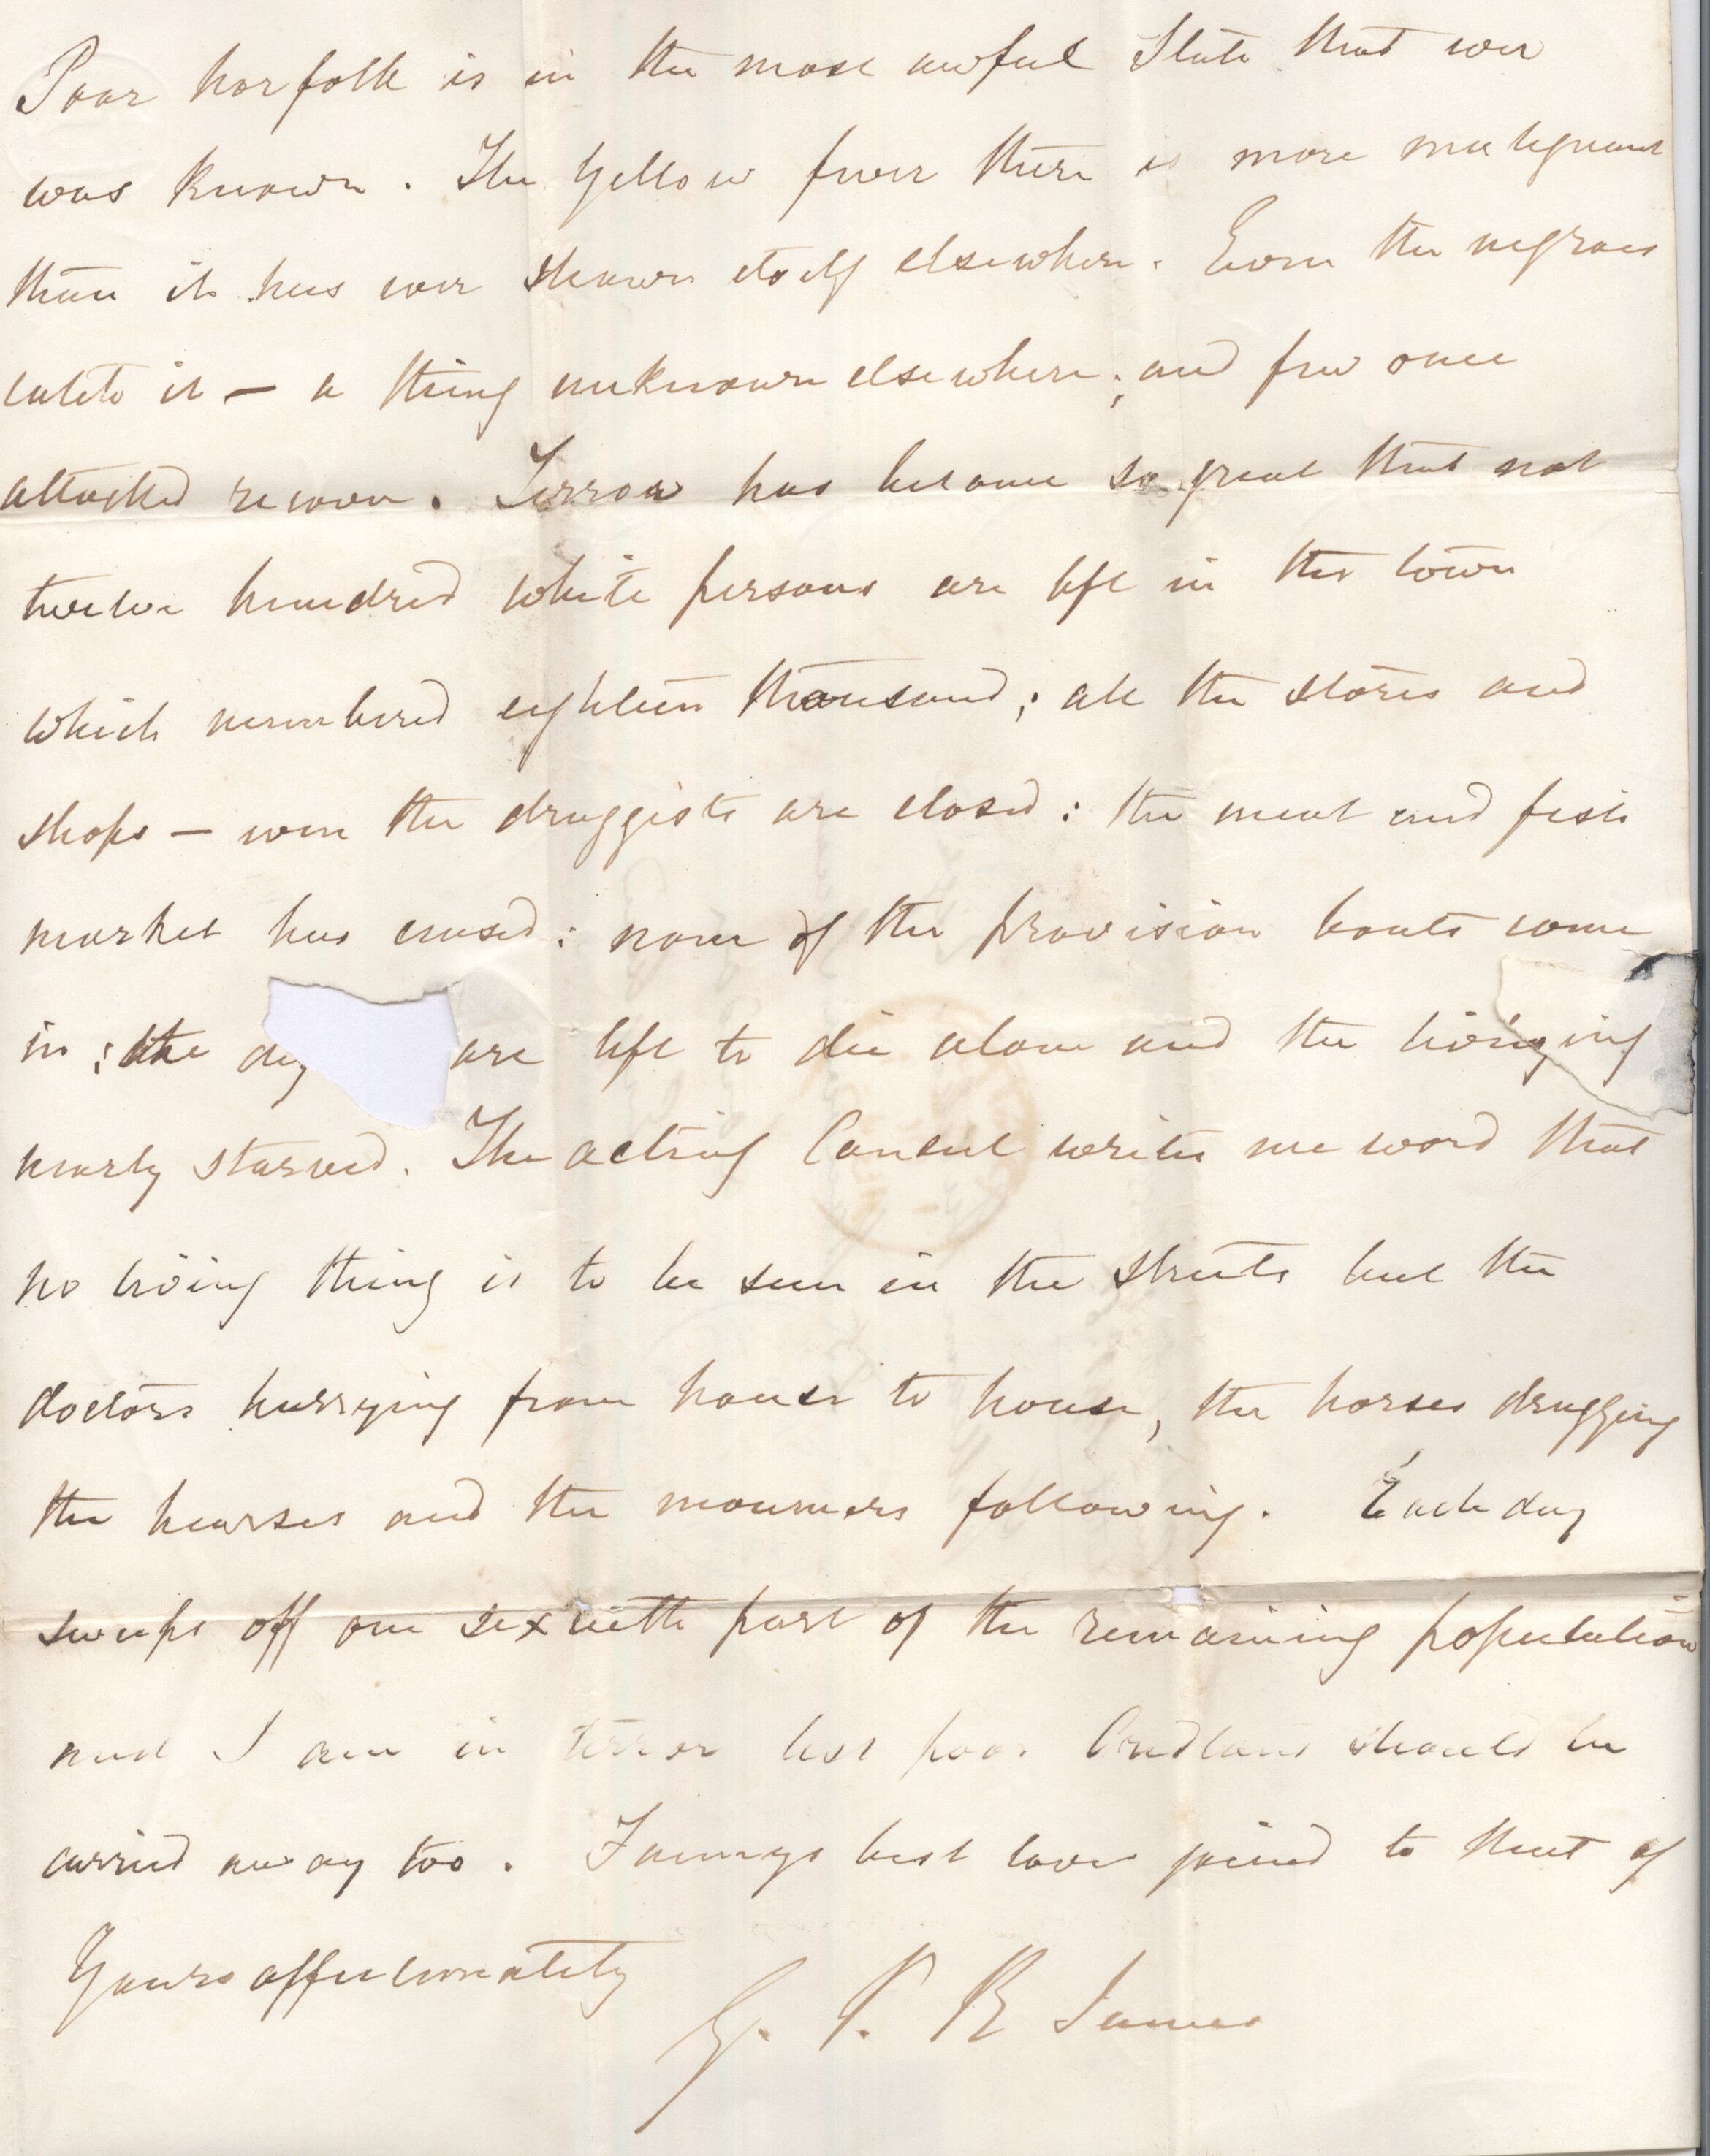 Poor Norfolk is in the most awful State that ever
was known. The Yellow fever there is more malignant
than it has ever shown itself elsewhere. Even the negroes
catch it — a thing unknown elsewhere; and few once
attacked recover. Terror has become so great that not
twelve hundred white persons are left in the town
which numbered eighteen thousand; all the stores and
shops — even the druggists are closed: the meat and fish
market has ceased: none of the provision boats come
in; the dy are left to die alone and the living
nearly starved. The acting Consul writes me word that
no living thing is to be seen in the streets but the
doctors hurrying from house to house, the horses dragging
the hearses and the mourners following. Each day
sweeps off one sixtieth part of the remaining population
and I am in terror lest poor should be
carried away too. Fannys best love joined to that of
Yours affectionately
G. P. R James